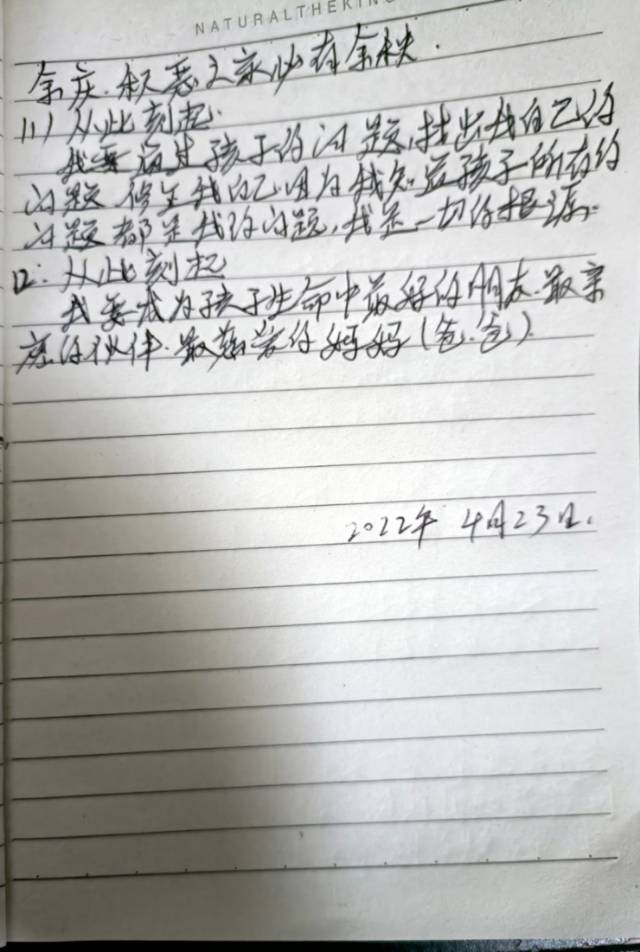 NATURALTHEKIN
余庆.积恶之家必有余殃.
11) 从此刻起.
我要通过孩子的问题,找出我自己的
问题 修正我自己因为我知道孩子所有的
问题都是我的问题,我是一切的根源.
12. 从此刻起
我要成为孩子生命中最好的朋友.最亲
密的伙伴.最慈爱的妈妈(爸.爸)
2022年 4月23日.